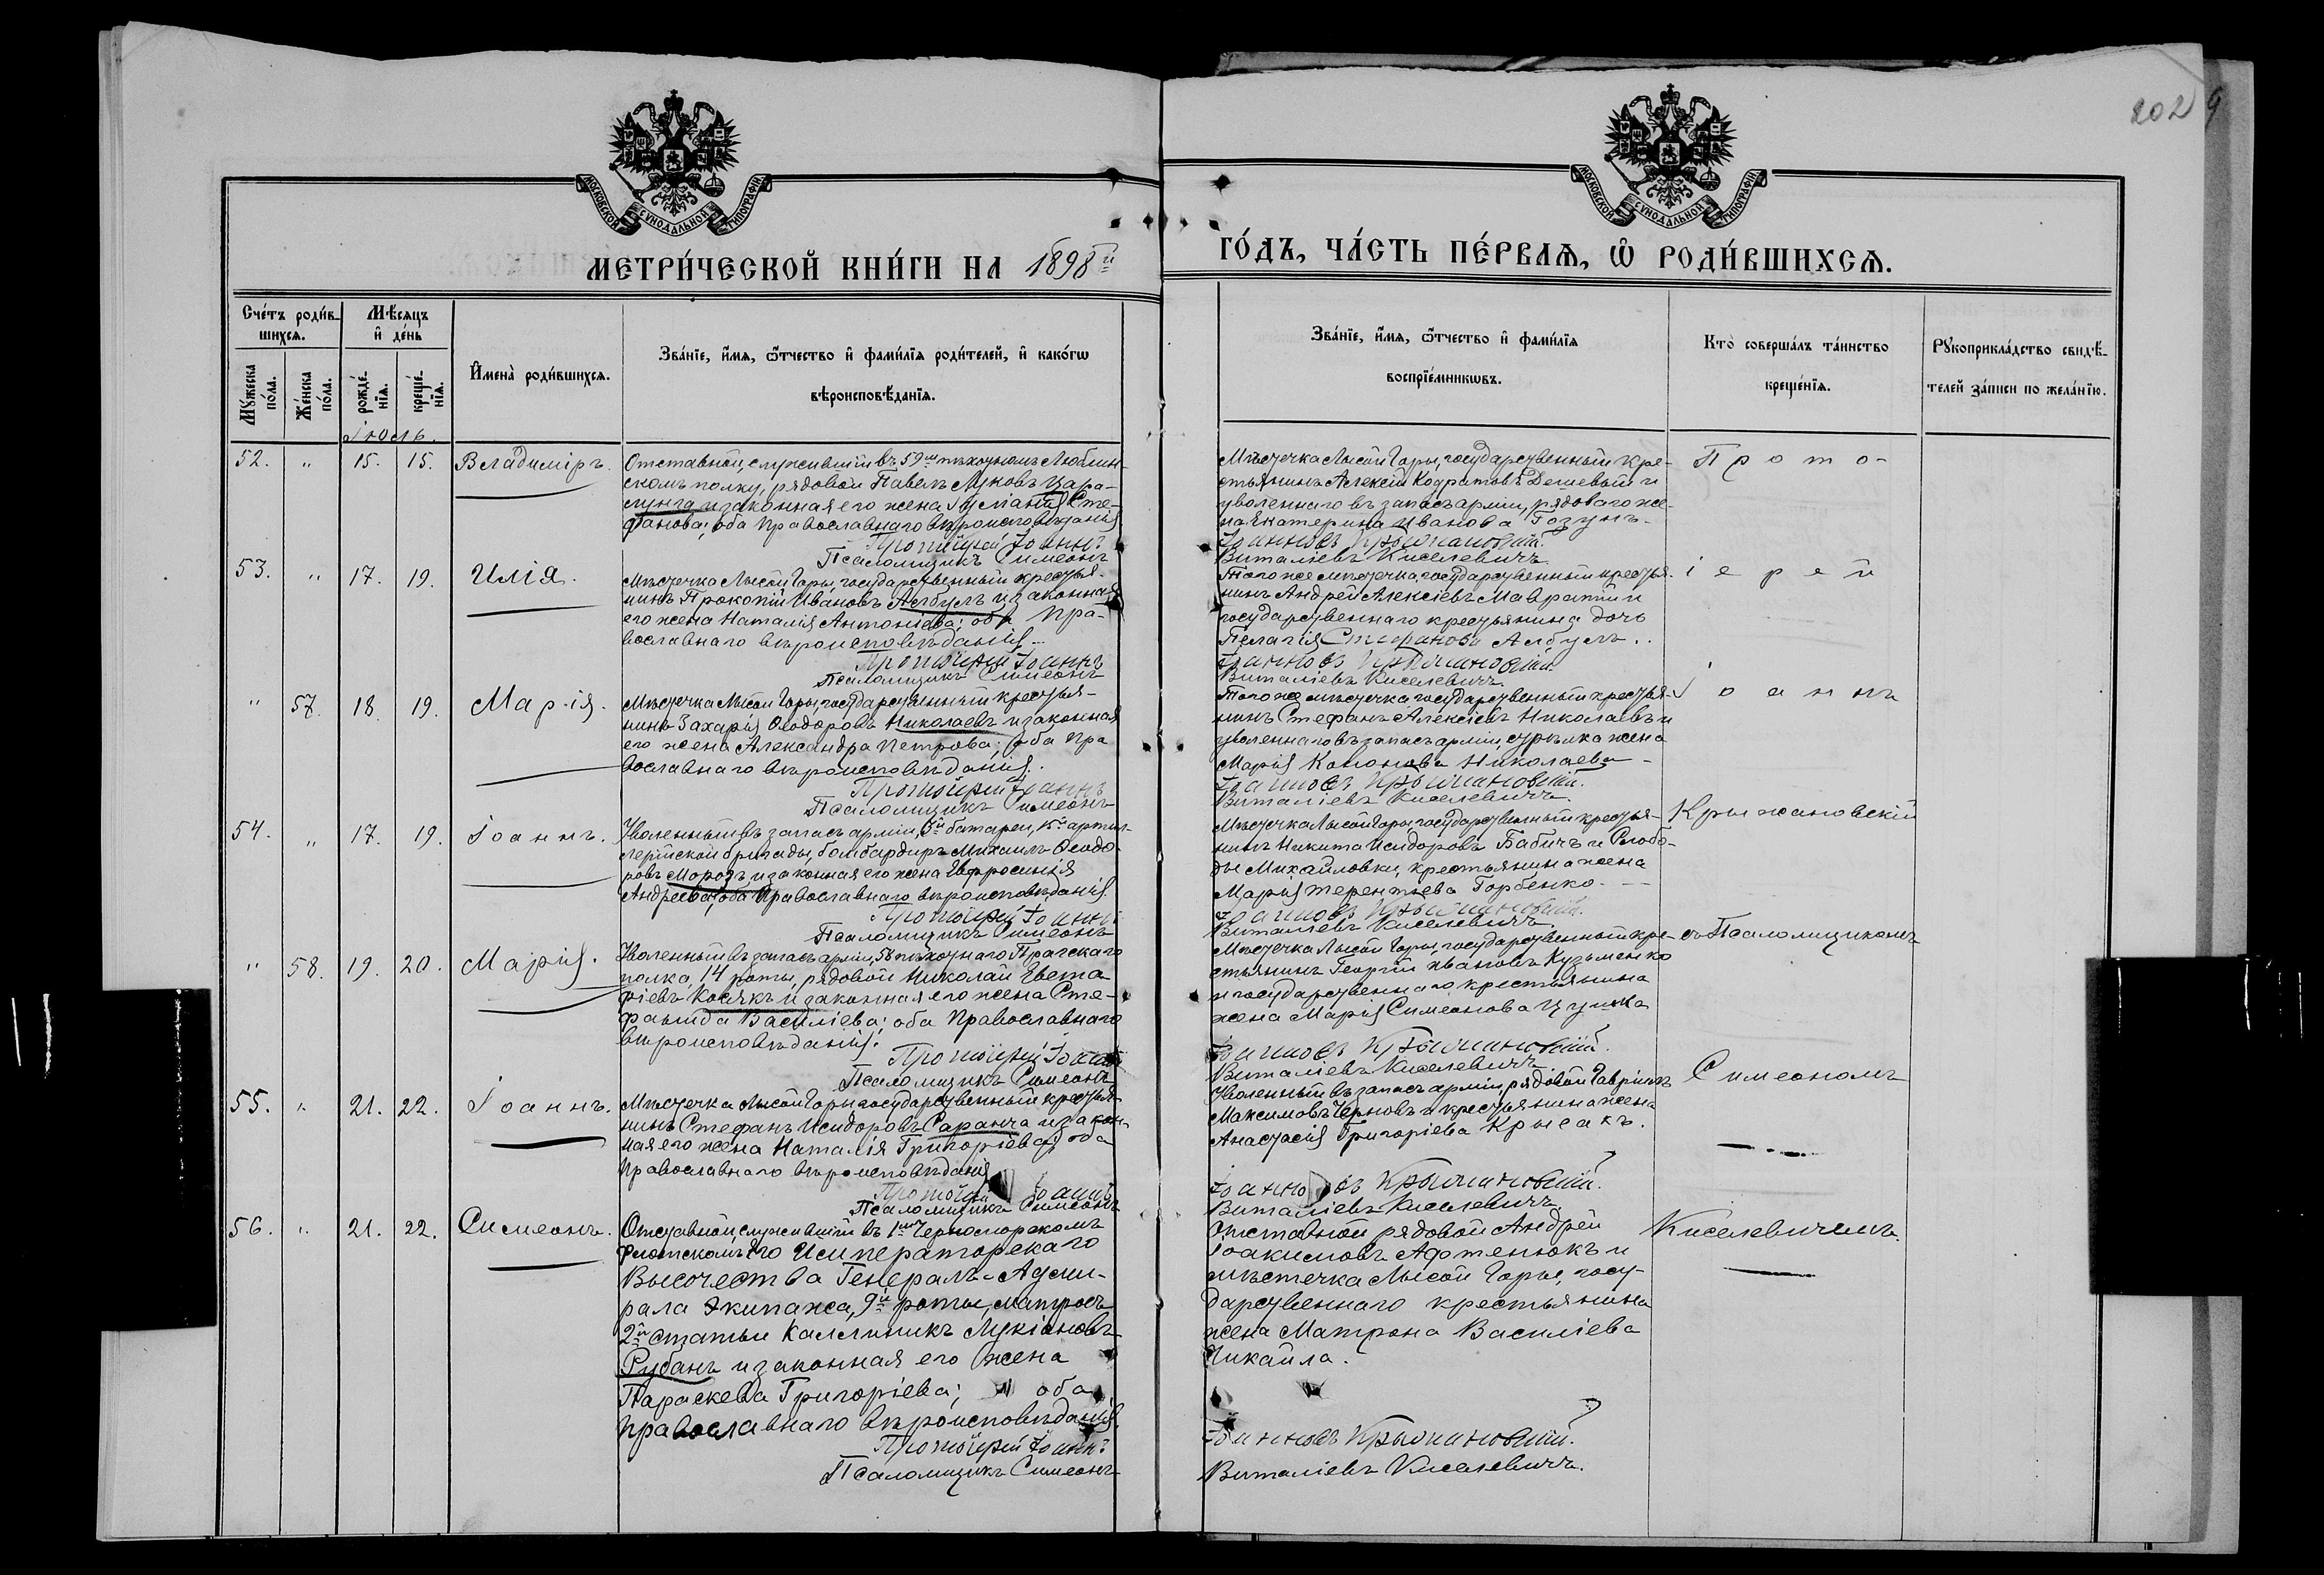 202
9
МОСКОВСКОЙ СУНОДАЛЬНОЙ ТИПОГРАФІИ.
МОСКОВСКОЙ СУНОДАЛЬНОЙ ТИПОГРАФІИ.
МЕТРИ́ЧЕСКОЙ КНИ́ГИ НА 1898й
ГО́ДЪ, ЧА́СТЬ ПЕ́РВАѦ, Ѡ҆ РОДИ́ВШИХСѦ.
Сче́тъ роди́в-
шихсѧ.
Мѣ́сѧцъ
и҆ де́нь
Мꙋ́жеска
по́ла.
Же́нска
по́ла.
рожде́-
нїѧ.
креще́-
нїѧ.
И҆мена̀ роди́вшихсѧ.
Зва́нїе, и҆́мѧ, ѻ҆́тчество и҆ фами́лїѧ роди́телей, и҆ како́гѡ
вѣроисповѣ́данїѧ.
Зва́нїе, и҆́мѧ, ѻ҆́тчество и҆ фами́лїѧ
воспрїе́мникѡвъ.
Кто̀ соверша́лъ та́инство
креще́нїѧ.
Рꙋкоприкла́дство свидѣ́-
телей за́писи по жела́нїю.
Іюль.
52. " 15. 15. Владиміръ.
Отставной, служившій въ 59мъ пѣхотномъ Люблин-
скомъ полку, рядовой Павелъ Луковъ Цара-
лунга и законная его жена Іуліанія Сте-
фанова; оба православнаго вѣроисповѣданія
Протоіерей Іоаннъ
Псаломщикъ Симеонъ
Мѣстечка Лысой Горы, государственный кре-
стьянинъ Алексій Кодратовъ Дешевый и
уволеннаго въ запасъ арміи, рядоваго же-
на Екатерина Иванова Гозунъ.
Іоанновъ Крыжановскій.
Виталіевъ Киселевичъ.
Прото-
53. " 17. 19. Илія.
Мѣстечка Лысой Горы, государственный крестья-
нинъ Прокопій Ивановъ Албулъ и законная
его жена Наталія Антоніева; оба пра-
вославнаго вѣроисповѣданія.
Протоіерей Іоаннъ
Псаломщикъ Симеонъ
Того же мѣстечка, государственный крестья-
нинъ Андрей Алексіевъ Мавратій и
государственнаго крестьянина дочь
Пелагія Стефанова Албулъ.
Іоанновъ Крыжановскій
Виталіевъ Киселевичъ.
іерей
" 57. 18. 19. Марія.
Мѣстечка Лысой Горы, государственный крестья-
нинъ Захарія Ѳеодоровъ Николаевъ и законная
его жена Александра Петрова; оба пра
вославнаго вѣроисповѣданія.
Протоіерей Іоаннъ
Псаломщикъ Симеонъ
Того же мѣстечка, государственный крестья-
нинъ Стефанъ Алексіевъ Николаевъ и
уволеннаго въ запасъ арміи, стрѣлка жена
Марія Кононова Николаева
Іоанновъ Крыжановскій.
Виталіевъ Киселевичъ.
Іоаннъ
54. " 17. 19. Іоаннъ.
Уволенный въ запасъ арміи, 5й батареи, 15й артил-
лерійской бригады, бомбардиръ Михаилъ Ѳеодо-
ровъ Морозъ и законная его жена Евфросинія
Андреева; оба православнаго вѣроисповѣданія.
Протоіерей Іоаннъ
Псаломщикъ Симеонъ
Мѣстечка Лысой Горы, государственный крестья-
нинъ Никита Исидоровъ Бабичъ и Слобо-
ды Михайловки, крестьянина жена
Марія Терентьева Горбенко.
Іоанновъ Крыжановскій.
Виталіевъ Киселевичъ.
Крыжановскій
" 58. 19. 20. Марія.
Уволенный въ запасъ арміи, 58 пѣхотнаго Прагскаго
полка, 14 роты, рядовой Николай Евста
фіевъ Косякъ и законная его жена Сте-
фанида Василіева; оба православнаго
вѣроисповѣданія.
Протоіерей Іоаннъ
Псаломщикъ Симеонъ
Мѣстечка Лысой Горы, государственный кре-
стьянинъ Георгій Ивановъ Кузьменко
и государственнаго крестьянина
жена Марія Симеонова Цушка
Іоанновъ Крыжановскій.
Виталіевъ Киселевичъ
съ Псаломщикомъ
55. " 21. 22. Іоаннъ.
Мѣстечка Лысой Горы государственный крестья-
нинъ Стефанъ Исидоровъ Саранча и закон-
ная его жена Наталія Григоріева; оба
православнаго вѣроисповѣданія
Протоіерей Іоаннъ
Псаломщикъ Симеонъ
Уволенный въ запасъ арміи, рядовой Гавріилъ
Максимовъ Черновъ и крестьянина жена
Анастасія Григоріева Крысакъ.
Іоанновъ Крыжановскій.
Виталіевъ Киселевичъ
Симеономъ
56. " 21. 22. Симеонъ.
Отставной, служившій въ 1мъ Черноморскомъ
флотскомъ Его Императорскаго
Высочества Генералъ-Адми-
рала экипажа, 9й роты, матросъ
2й статьи Каллиникъ Лукіановъ
Рубанъ и законная его жена
Параскева Григоріева; оба
православнаго вѣроисповѣданія.
Протоіерей Іоаннъ
Псаломщикъ Симеонъ
Отставной рядовой Андрей
Іоакимовъ Афтенюкъ и
мѣстечка Лысой Горы, госу-
дарственнаго крестьянина
жена Матрона Василіева
Чикайла.
Іоанновъ Крыжановскій.
Виталіевъ Киселевичъ.
Киселевичемъ.